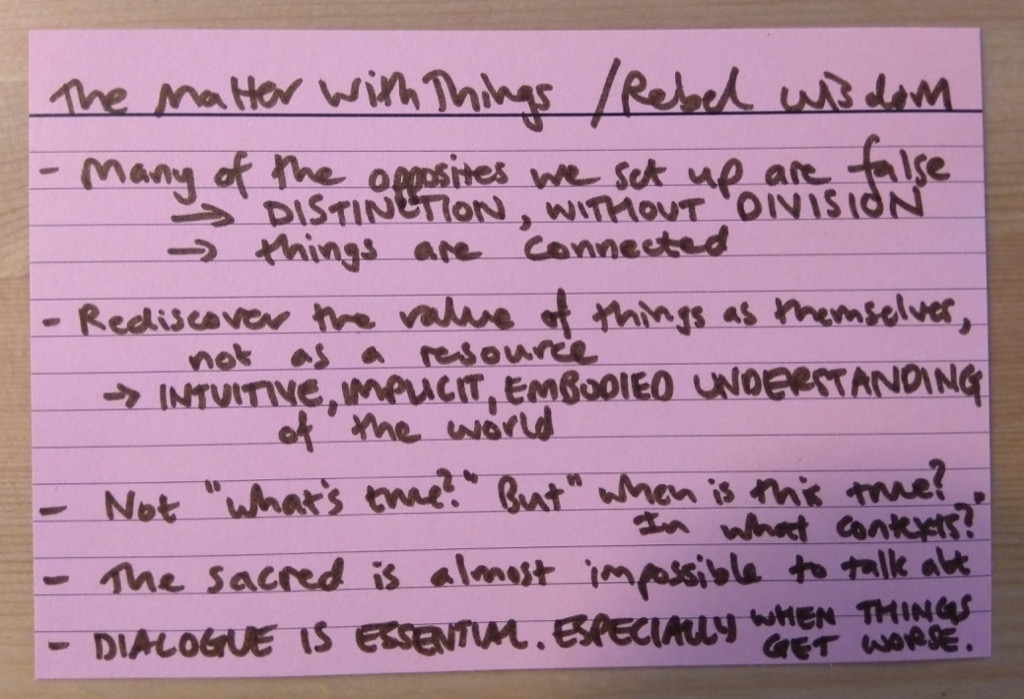 The Matter With Things / Rebel Wisdom
- Many of the opposites we set up are false
→ DISTINCTION, WITHOUT DIVISION
→ things are connected
- Rediscover the value of things as themselves,
not as a resource
→ INTUITIVE, IMPLICIT, EMBODIED UNDERSTANDING
of the world
- Not "what's true?" But "when is this true?
In what contexts?"
- The sacred is almost impossible to talk abt
- DIALOGUE IS ESSENTIAL. ESPECIALLY WHEN THINGS
GET WORSE.